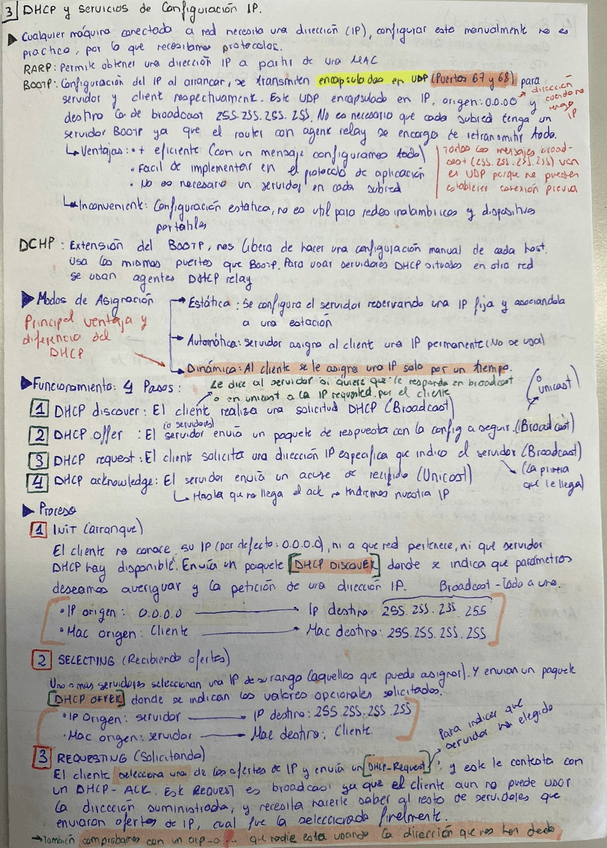 3 DHCP y servicios de Configuración IP.
Cualquier máquina conectada a red necesita una dirección (IP), configurar esto manualmente no es
práctico, por lo que necesitamos protocolos.
RARP: Permite obtener una dirección IP a partir de una MAC
BOOTP: Configuración del IP al arrancar, se transmiten encapsulados en UDP (Puertos 67 y 68) para
servidor y client respectivamente. Este UDP encapsulado en IP, origen: 0.0.0.0 y
dirección cuando no tengo IP
destino la de broadcast 255.255.255.255. No es necesario que cada subred tenga un
servidor BOOTP ya que el router con agente relay se encarga de retransmitir todo.
Ventajas: • + eficiente (con un mensaje configuramos todo)
• Facil de implementar en el protocolo de aplicación
• No es necesario un servidor en cada subred
Todos los mensajes broad-
cast (255.255.255.255) van
en UDP porque no pueden
establecer conexión previa
Inconveniente: Configuración estática, no es util para redes inalambricas y dispositivos
portatiles
DCHP: Extensión del BOOTP, nos libera de hacer una configuración manual de cada host.
Usa los mismos puertos que BOOTP. Para usar servidores DHCP situados en otra red
se usan agentes DHCP relay
Modos de Asignación
Estática: Se configura el servidor reservando una IP fija y asociandola
a una estación
Automática: servidor asigna al cliente una IP permanente (No se usa)
Dinámica: Al cliente se le asigna una IP solo por un tiempo.
Principal ventaja y
diferencia del
DHCP
Funcionamiento: 4 Pasos:
Le dice al servidor si quiere que le responda en broadcast
o en unicast a la IP requested, por el cliente
1 DHCP discover: El cliente realiza una solicitud DHCP (Broadcast)
(o servidores)
2 DHCP offer: El servidor envia un paquete de respuesta con la config a seguir. (Broadcast)
o unicast
3 DHCP request: El cliente solicita una dirección IP especifica que indico el servidor (Broadcast)
(La primera
que le llega)
4 DHCP acknowledge: El servidor envia un acuse de recibido (Unicast)
Hasta que no llega el ack no tendremos nuestra IP
Proceso
1 INIT (arranque)
El cliente no conoce su IP (por defecto: 0.0.0.0), ni a que red pertenece, ni que servidor
DHCP hay disponible. Envía un paquete DHCP DISCOVER donde se indica que parámetros
deseamos averiguar y la petición de una dirección IP. Broadcast - Todo a unos.
• IP origen: 0.0.0.0 IP destino: 255.255.255.255
• Mac origen: Cliente Mac destino: 255.255.255.255
2 SELECTING (Recibiendo ofertas)
Uno o mas servidores seleccionan una IP de su rango (aquellas que puede asignar). Y envían un paquete
DHCP OFFER donde se indican los valores opcionales solicitados.
• IP Origen: servidor IP destino: 255.255.255.255
• Mac origen: servidor Mac destino: Cliente
Para indicar que
servidor ha elegido
3 REQUESTING (Solicitando)
El cliente selecciona una de las ofertas de IP y envía un DHCP-Request, y este le contesta con
un DHCP-ACK. Este REQUEST es broadcast ya que el cliente aun no puede usar
la dirección suministrada, y necesita hacerle saber al resto de servidores que
enviaron ofertas de IP, cual fue la seleccionada finalmente.
También comprobamos con un que nadie esta usando la dirección que nos han dado